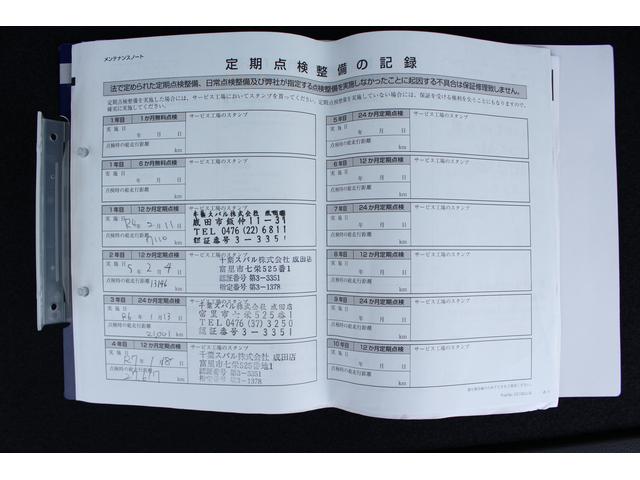 メンテナンスノート
定期点検整備の記録
法で定められた定期点検整備、日常点検整備及び弊社が指定する点検整備を実施しなかったことに起因する不具合は保証修理致しません。
定期点検整備を実施した場合には、サービス工場においてスタンプを貰ってください。定期点検整備を実施していない場合には、保証を受ける権利を失うことにもなりますので、
確実に実施してください。
1年目 1か月無料点検 サービス工場のスタンプ
実施日
年 月 日
点検時の総走行距離
km
1年目 6か月無料点検 サービス工場のスタンプ
実施日
年 月 日
点検時の総走行距離
km
1年目 12か月定期点検 サービス工場のスタンプ
実施日
R4年 2月 11日
点検時の総走行距離
7110 km
千葉スバル株式会社 成田店
成田市飯仲11-31
TEL 0476 (22) 6811
認証番号 3-3351
2年目 12か月定期点検 サービス工場のスタンプ
実施日
5年 2月 4日
点検時の総走行距離
13146 km
千葉スバル株式会社 成田店
富里市七栄525番1
認証番号 第3-3351
指定番号 第3-1378
3年目 24か月定期点検 サービス工場のスタンプ
実施日
R6年 1月 13日
点検時の総走行距離
21001 km
千葉スバル株式会社 成田店
富里市七栄525番1
TEL 0476 (37) 3250
認証番号 3-3351
4年目 12か月定期点検 サービス工場のスタンプ
実施日
R7年 1月 18日
点検時の総走行距離
27677 km
千葉スバル株式会社 成田店
富里市七栄525番地1
認証番号 第3-3351
指定番号 第3-1378
5年目 24か月定期点検 サービス工場のスタンプ
実施日
年 月 日
点検時の総走行距離
km
6年目 12か月定期点検 サービス工場のスタンプ
実施日
年 月 日
点検時の総走行距離
km
7年目 24か月定期点検 サービス工場のスタンプ
実施日
年 月 日
点検時の総走行距離
km
8年目 12か月定期点検 サービス工場のスタンプ
実施日
年 月 日
点検時の総走行距離
km
9年目 24か月定期点検 サービス工場のスタンプ
実施日
年 月 日
点検時の総走行距離
km
10年目 12か月定期点検 サービス工場のスタンプ
実施日
年 月 日
点検時の総走行距離
km